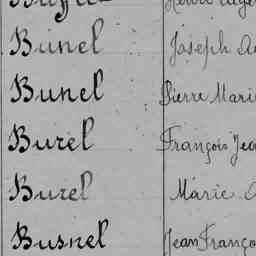 Bunel Joseph
Bunel Pierre Mari
Burel François Jea
Burel Marie
Busnel Jean Franço